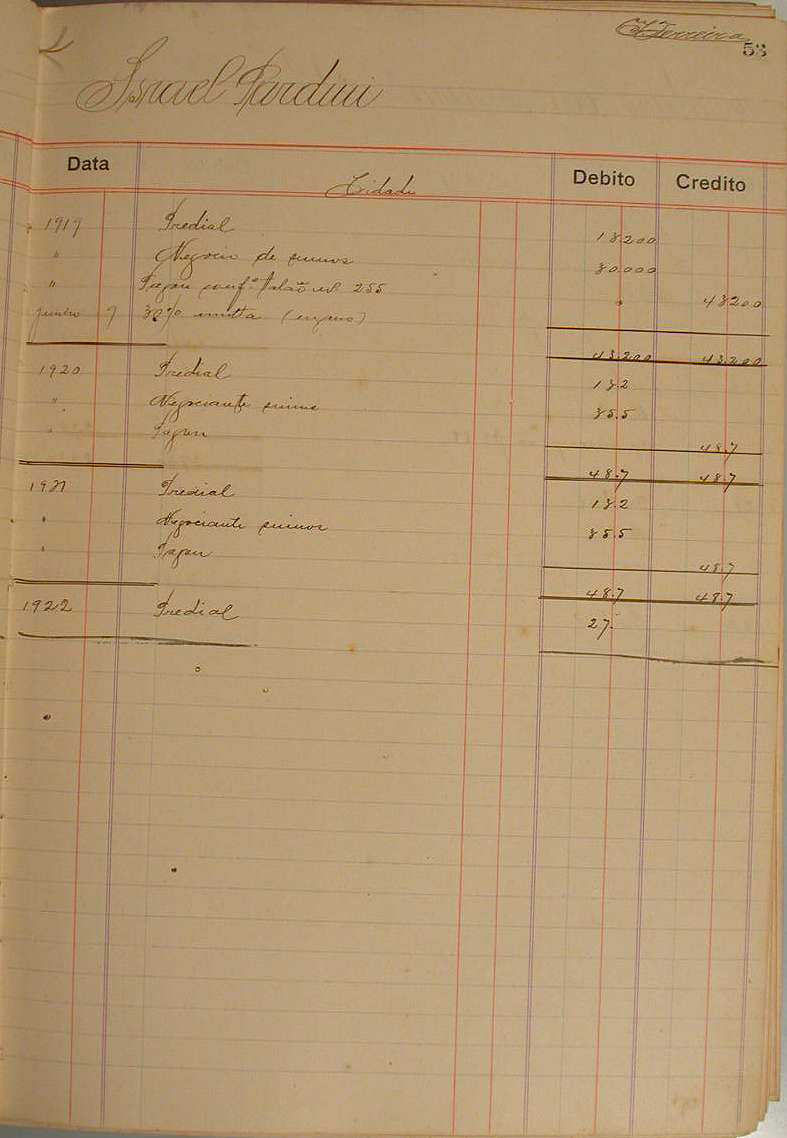 Ferreira
53
Israel Pardini
Data Debito Credito
Cidade
1919 Predial 13.200
" Negocio de suinos 30.000
" Pagou conf. talão nº 255 43200
Junho 9 30% multa (engano)
43.200 43.200
1920 Predial 13.2
" Negociante suino 35.5
" Pagou 48.7
48.7 48.7
1921 Predial 13.2
" Negociante suinos 35.5
" Pagou 48.7
48.7 48.7
1922 Predial 27.